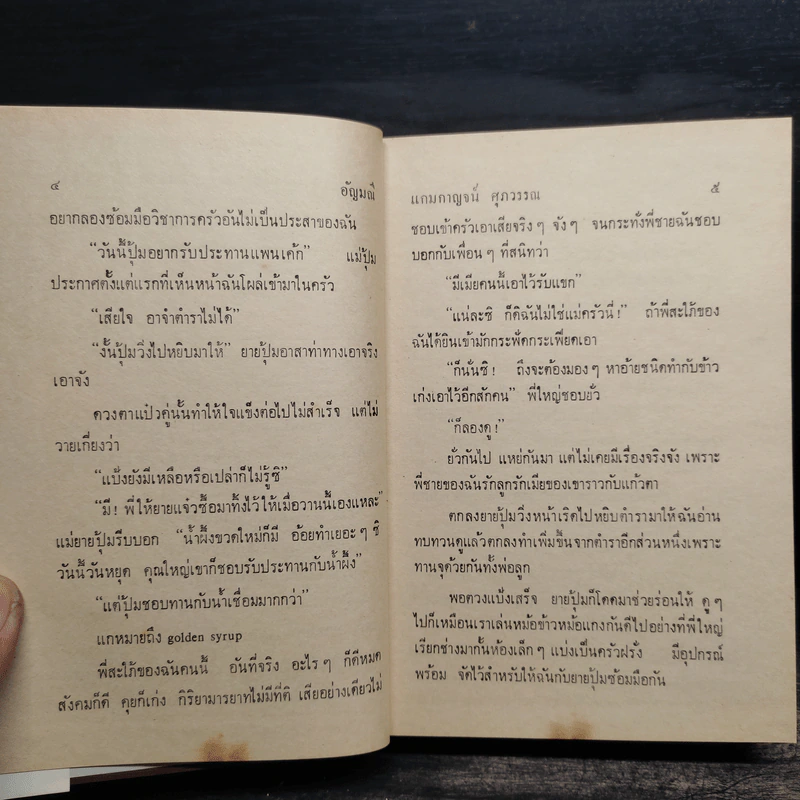 ๔ อัญมณี
อยากลองซ้อมมือวิชาการครัวอันไม่เป็นประสาของฉัน
“วันนี้ปุ้มอยากรับประทานแพนเค้ก” แม่ปุ้ม
ประกาศตั้งแต่แรกที่เห็นหน้าฉันโผล่เข้ามาในครัว
“เสียใจ อาจำตำราไม่ได้”
“งั้นปุ้มวิ่งไปหยิบมาให้” ยายปุ้มอาสาท่าทางเอาจริง
เอาจัง
ดวงตาแป๋วคู่นั้นทำให้ใจแข็งต่อไปไม่สำเร็จ แต่ไม่
วายเกี่ยงว่า
“แป้งยังมีเหลือหรือเปล่าก็ไม่รู้ซิ”
“มี! พี่ให้ยายแจ๋วซื้อมาทิ้งไว้ให้เมื่อวานนี้เองแหละ”
แม่ยายปุ้มรีบบอก “น้ำผึ้งขวดใหม่ก็มี อ้อยทำเยอะๆ ซิ
วันนี้วันหยุด คุณใหญ่เขาก็ชอบรับประทานกับน้ำผึ้ง”
“แต่ปุ้มชอบทานกับน้ำเชื่อมมากกว่า”
แกหมายถึง golden syrup
พี่สะใภ้ของฉันคนนี้ อันที่จริง อะไรๆ ก็ดีหมด
สังคมก็ดี คุยก็เก่ง กิริยามารยาทไม่มีที่ติ เสียอย่างเดียวไม่
แกมกาญจน์ ศุภวรรณ ๕
ชอบเข้าครัวเอาเสียจริงๆ จังๆ จนกระทั่งพี่ชายฉันชอบ
บอกกับเพื่อนๆ ที่สนิทว่า
“มีเมียคนนี้เอาไว้รับแขก”
“แน่ละซิ ก็ดิฉันไม่ใช่แม่ครัวนี่!” ถ้าพี่สะใภ้ของ
ฉันได้ยินเข้ามักกระฟัดกระเฟียดเอา
“ก็นั่นซิ! ถึงจะต้องมองๆ หาอ้ายชนิดทำกับข้าว
เก่งเอาไว้อีกสักคน” พี่ใหญ่ชอบยั่ว
“ก็ลองดู!”
ยั่วกันไป แหย่กันมา แต่ไม่เคยมีเรื่องจริงจัง เพราะ
พี่ชายของฉันรักลูกรักเมียของเขาราวกับแก้วตา
ตกลงยายปุ้มวิ่งหน้าเริดไปหยิบตำรามาให้ฉันอ่าน
ทบทวนดูแล้วตกลงทำเพิ่มขึ้นจากตำราอีกส่วนหนึ่งเพราะ
ทานจุด้วยกันทั้งพ่อลูก
พอตวงแป้งเสร็จ ยายปุ้มก็โดดมาช่วยร่อนให้ ดูๆ
ไปก็เหมือนเราเล่นหม้อข้าวหม้อแกงกันดีไปอย่างที่พี่ใหญ่
เรียกช่างมากั้นห้องเล็กๆ แบ่งเป็นครัวฝรั่ง มีอุปกรณ์
พร้อม จัดไว้สำหรับให้ฉันกับยายปุ้มซ้อมมือกัน